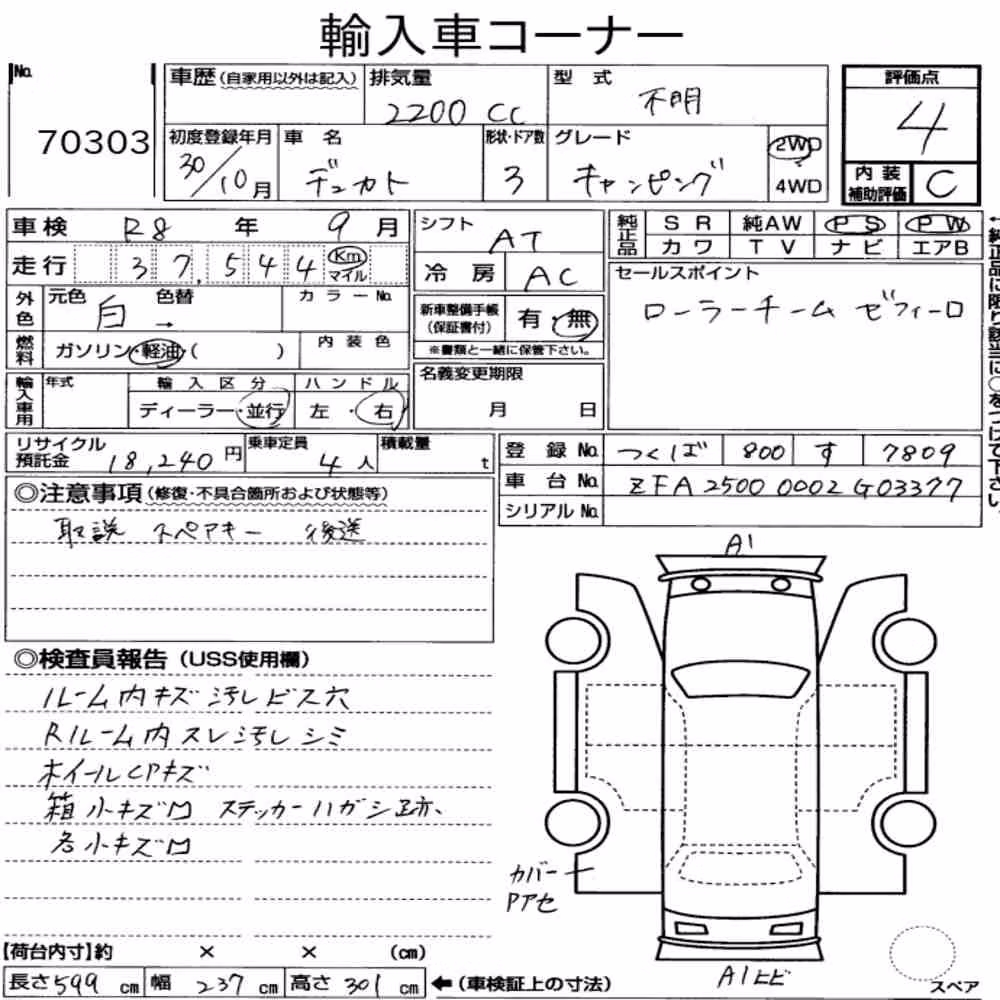 輸入車コーナー
No. 70303
車歴(自家用以外は記入) 排気量 2200 cc 型式 不明
初度登録年月 30/10月 車名 デュカト 形状・ドア数 3 グレード キャンピング 2WD 4WD
評価点 4
内装補助評価 C
車検 R8 年 9 月
走行 37,544 Km マイル
外色 元色 白 色替 → カラーNo.
燃料 ガソリン・軽油・( ) 内装色
輸入車用 年式 輸入区分 ディーラー・並行 ハンドル 左・右
シフト AT
冷房 AC
新車整備手帳(保証書付) 有・無
※書類と一緒に保管下さい。
名義変更期限 月 日
純正品 SR 純AW PS PW
カワ TV ナビ エアB
セールスポイント
ローラーチーム ゼフィーロ
←純正品に限り該当に○をつけて下さい。
リサイクル預託金 18,240円 乗車定員 4人 積載量 t
登録No. つくば 800 す 7809
車台No. ZFA25000002G03377
シリアルNo.
◎注意事項(修復・不具合箇所および状態等)
取説 スペアキー 後送
◎検査員報告(USS使用欄)
ルーム内キズ汚レビス穴
Rルーム内スレ汚レシミ
ホイールCPキズ
箱小キズ凹 ステッカーハガシ跡、
各小キズ凹
A1
カバー
PアセA1ヒビ
スペア
【荷台内寸】約 × × (cm)
長さ599cm 幅237cm 高さ301cm ←(車検証上の寸法)